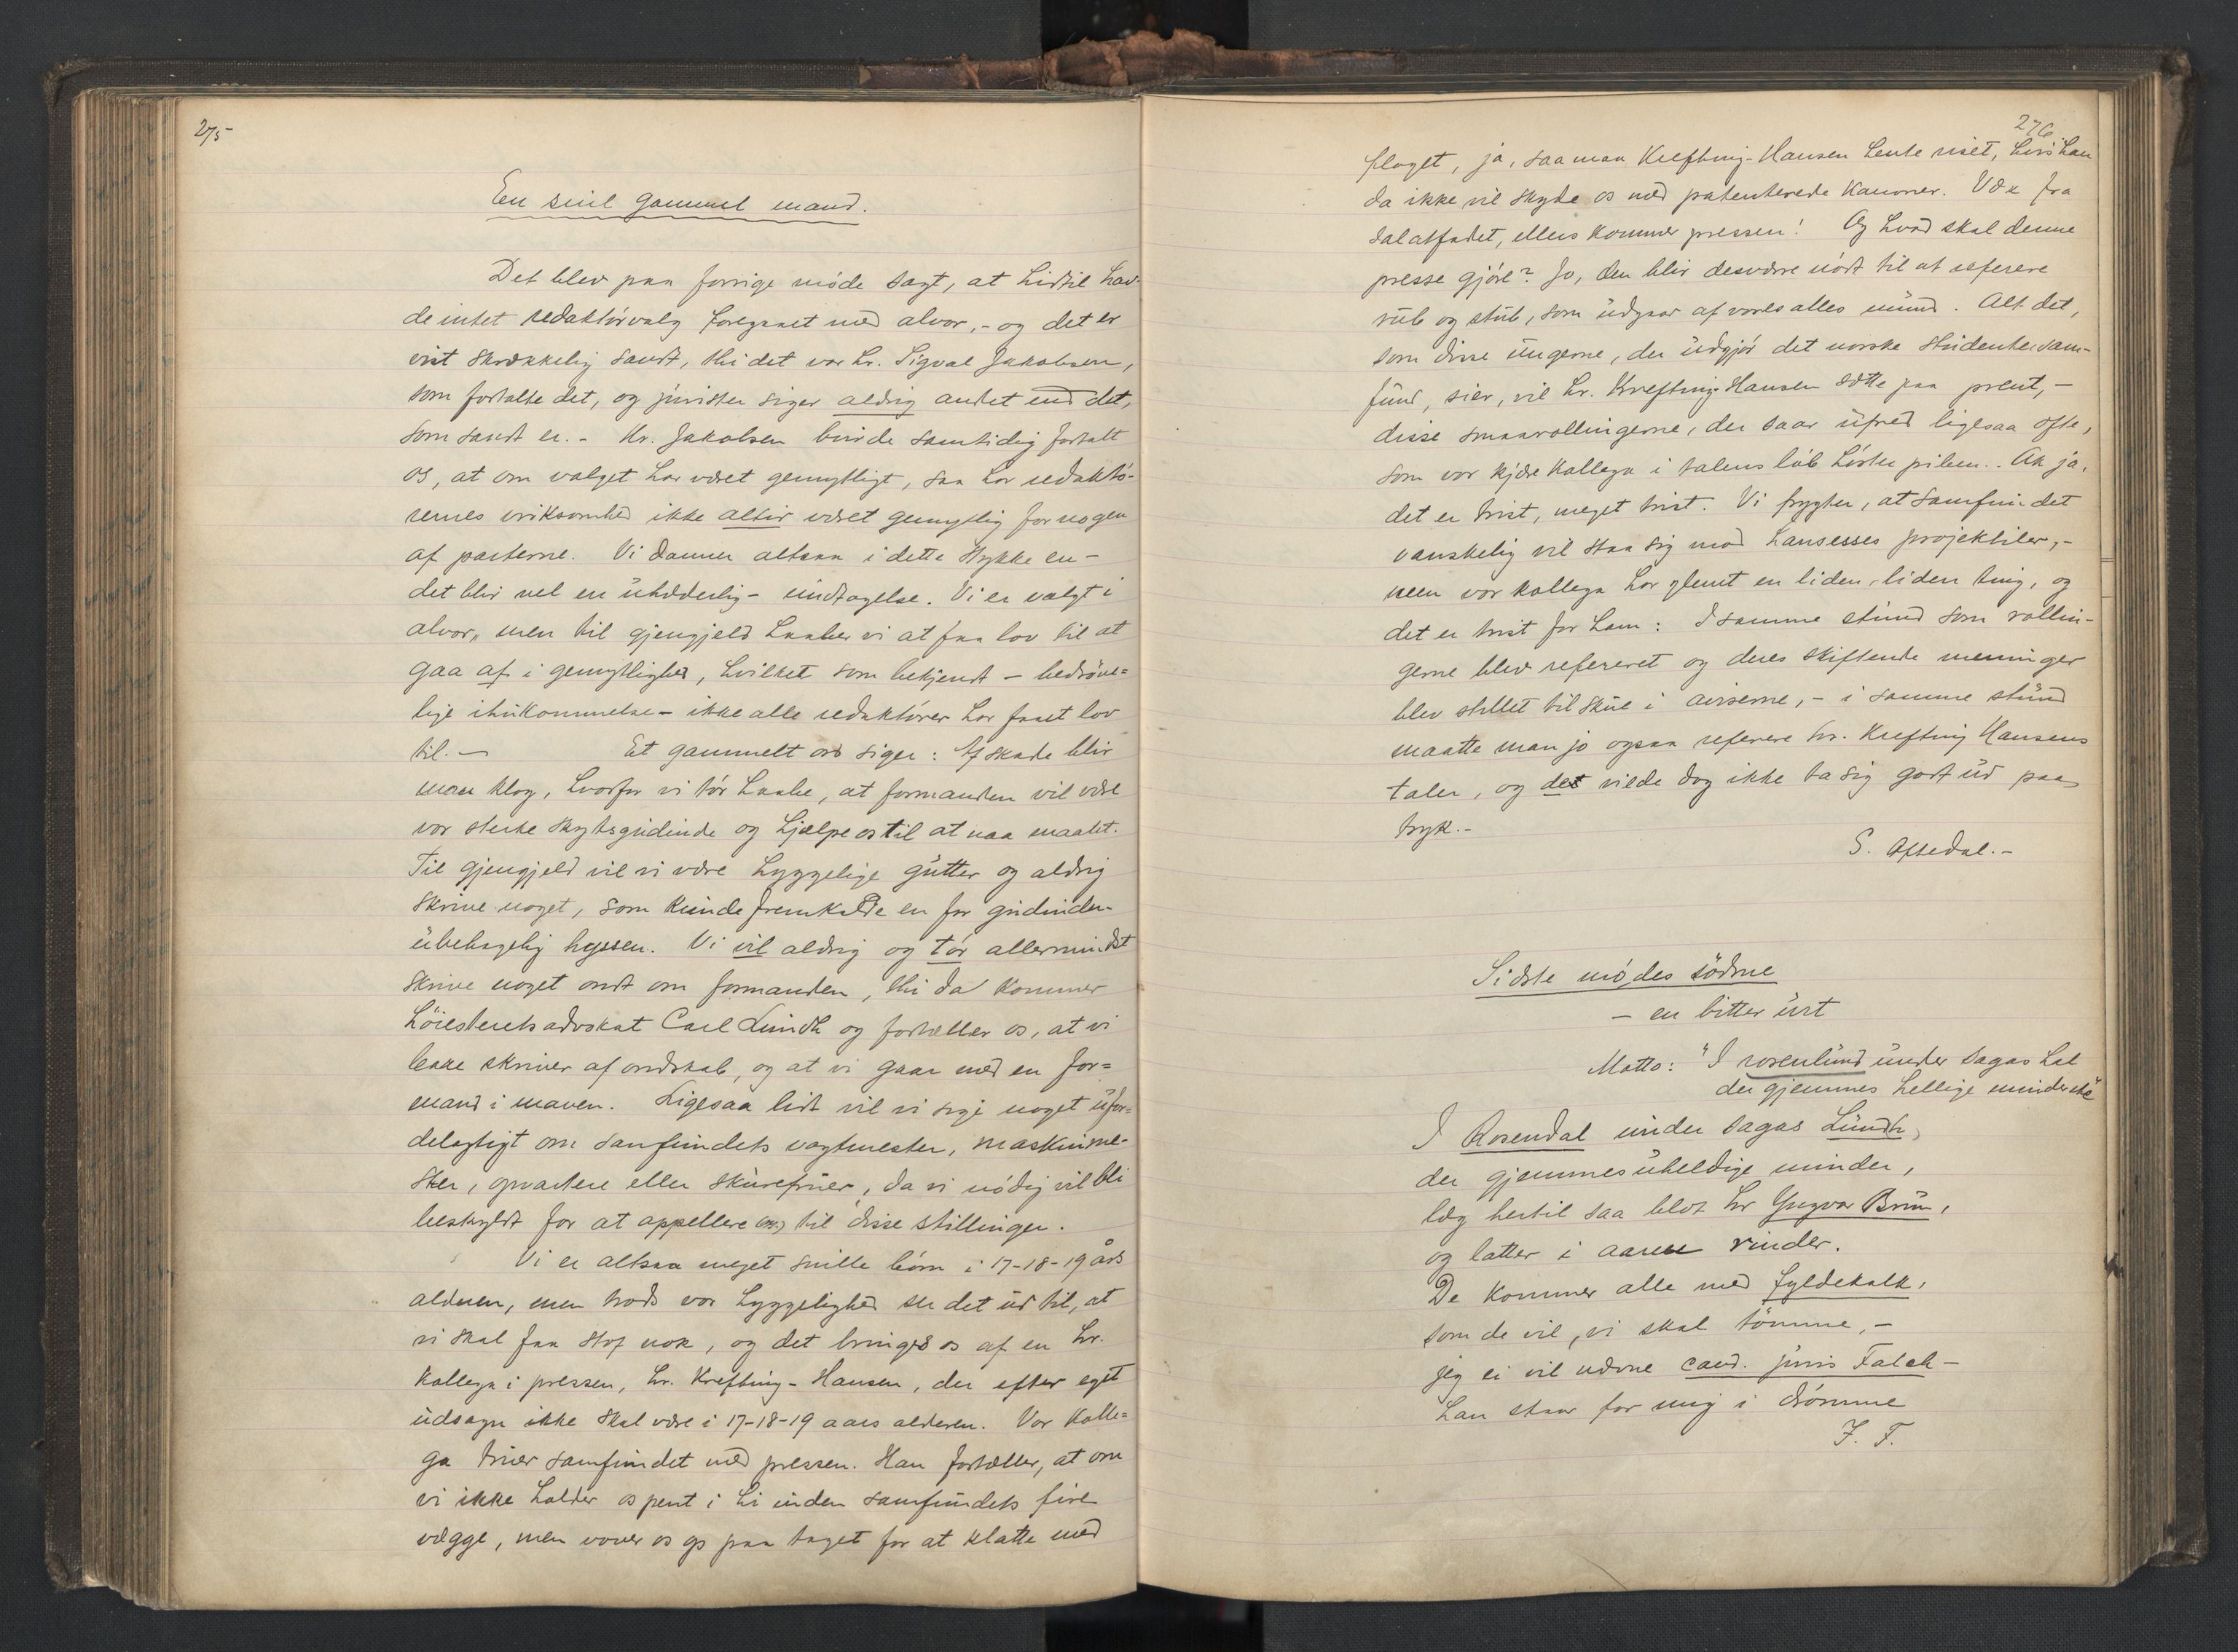 275
En snil gammel mand.
Det blev paa forrige møde sagt, at hidtil hav-
de intet redaktørvalg foregaaet med alvor, - og det er
vist skrækkelig sandt, thi det var hr. Sigval Jakobsen,
som fortalte det, og jurister siger aldrig andet end det,
som sandt er. - Hr. Jakobsen burde samtidig fortalt
os, at om valget har været gemytligt, saa har redaktø-
rernes virksomhed ikke altid været gemytlig for nogen
af parterne. Vi danner altsaa i dette stykke en -
det blir vel en uhæderlig - undtagelse. Vi er valgt i
alvor, men til gjengjeld haaber vi at faa lov til at
gaa af i gemytlighed, hvilket som bekjendt - bedrøve-
lige ihukommelse - ikke alle redaktører har faaet lov
til. - Et gammelt ord siger: Af skade blir
man klog, hvorfor vi tør haabe, at formanden vil være
vor sterke skytsgudinde og hjælpe os til at naa maalet.
Til gjengjeld vil vi være hyggelige gutter og aldrig
skrive noget, som kunde fremkalde en for gudinden
ubehagelig hyssen. Vi vil aldrig og tør allermindst
skrive noget ondt om formanden, thi da kommer
høiesteretsadvokat Carl Lundh og fortæller os, at vi
bare skriver af ondskab, og at vi gaar med en for-
mand i maven. Ligesaa lidt vil vi sige noget ufor-
delagtigt om samfundets vagtmester, maskinme-
ster, opvartere eller skurefruer, da vi nødig vil bli
beskyldt for at appellere (om) til disse stillinger.
Vi er altsaa meget snille børn i 17-18-19 års
alderen, men trods vor hyggelighed ser det ud til, at
vi skal faa stof nok, og det bringes os af en hr.
kollega i pressen, hr. Krefting-Hansen, der efter eget
udsagn ikke skal være i 17-18-19 aars alderen. Vor kolle-
ga truer samfundet med pressen. Han fortæller, at om
vi ikke holder os pent i hi inden samfundets fire
vægge, men vover os op paa taget for at klatte med
276
flaget, ja, saa maa Krefting-Hansen hente riset, hvis han
da ikke vil skyde os med patenterede kanoner. Væk fra
salatfadet, ellers kommer pressen! Og hvad skal denne
presse gjøre? Jo, den blir desværre nødt til at referere
rub og stub, som udgaar af vores alles mund. Alt det,
som disse ungerne, der udgjør det norske studentersam-
fund, sier, vil hr. Krefting-Hansen sætte paa prent, -
disse smaarollingerne, der saar ufred ligesaa ofte,
som vor kjære kollega i talens løb høster piben. - Ak ja,
det er trist, meget trist. Vi frygter, at samfundet
vanskelig vil staa sig mod Hansesses projektiler, -
men vor kollega har glemt en liden, liden ting, og
det er trist for ham: I samme stund som rollin-
gerne blev refereret og deres skiftende meninger
blev stillet til skue i aviserne, - i samme stund
maatte man jo ogsaa referere hr. Krefting Hansens
taler, og det vilde dog ikke ta sig godt ud paa
tryk. -
S. Aftedal. -
Sidste mødes sødme
- en bitter urt
Motto: "I rosenlund under sagas hal
der gjemmes hellige minder
I Rosendal under sagas Lundh,
der gjemmes uheldige minder,
læg hertil saa blot hr Yngvar Brun,
og latter i aaren rinder.
De kommer alle med fyldekalk,
som de vil, vi skal tømme, -
jeg ei vil nævne cand. juris Falch -
han staar for mig i drømme
J. F.